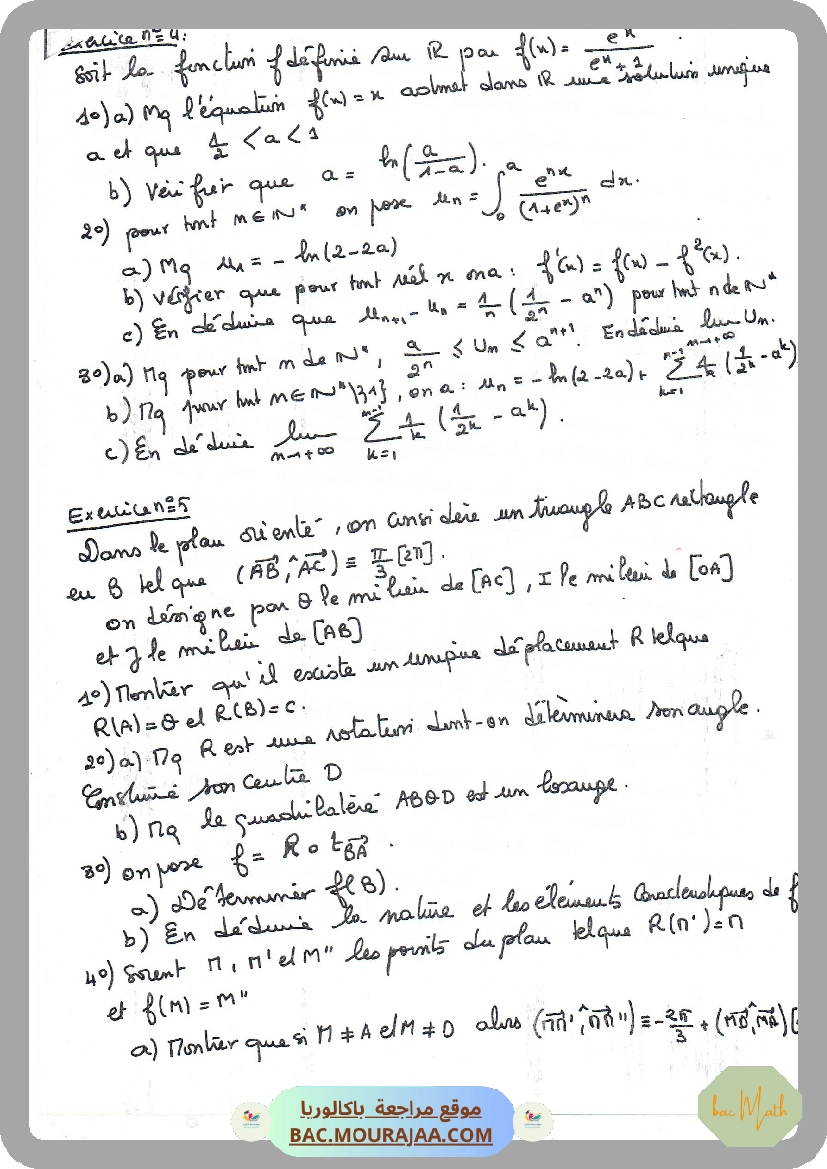 Exercice n°4:
Soit la fonction f définie sur IR par f(x) = e^x / (e^x + 1) .
1°) a) Mq l'équation f(x) = x admet dans IR une solution unique
a et que 1/2 < a < 1
b) Vérifier que a = ln(a/(1-a)).
2°) pour tout n ∈ IN* on pose u_n = ∫_0^a e^(nx) / (1+e^x)^n dx.
a) Mq u_1 = - ln(2-2a)
b) Vérifier que pour tout réel x on a : f'(x) = f(x) - f²(x).
c) En déduire que u_(n+1) - u_n = 1/n (1/2^n - a^n) pour tout n de IN*
3°) a) Mq pour tout n de IN*, a/2^n ≤ U_n ≤ a^(n+1). En déduire lim_(n→+∞) U_n.
b) Mq pour tout n ∈ IN*\{1}, on a : u_n = - ln(2-2a) + Σ_(k=1)^(n-1) 1/k (1/2^k - a^k)
c) En déduire lim_(n→+∞) Σ_(k=1)^(n-1) 1/k (1/2^k - a^k) .
Exercice n°5
Dans le plan orienté, on considère un triangle ABC rectangle
en B tel que (AB, AC) ≡ π/3 [2π].
on désigne par O le milieu de [AC], I le milieu de [OA]
et J le milieu de [AB]
1°) Montrer qu'il existe un unique déplacement R tel que
R(A) = O et R(B) = C.
2°) a) Mq R est une rotation dont-on déterminera son angle.
Construire son centre D
b) Mq le quadrilatère ABOD est un losange.
3°) on pose f = R o t_BA .
a) Déterminer f(B).
b) En déduire la nature et les éléments caractéristiques de f
4°) Soient M, M' et M'' les points du plan tel que R(M') = M
et f(M) = M''
a) Montrer que si M ≠ A et M ≠ D alors (MM', MM'') ≡ -2π/3 + (MD, MA) [
موقع مراجعة باكالوريا
BAC.MOURAJAA.COM
bac Math